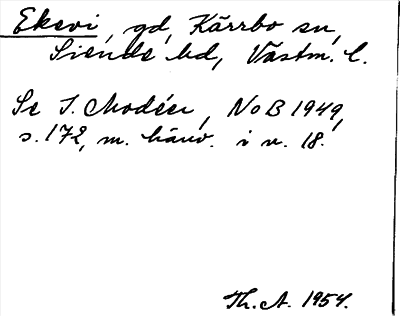 Eksvi, gd, Kärrbo sn,
Siende hd, Västm. l.
Se I. Modéer, NoB 1949,
s. 172, m. hänv. i n. 18.
Th. A. 1954.